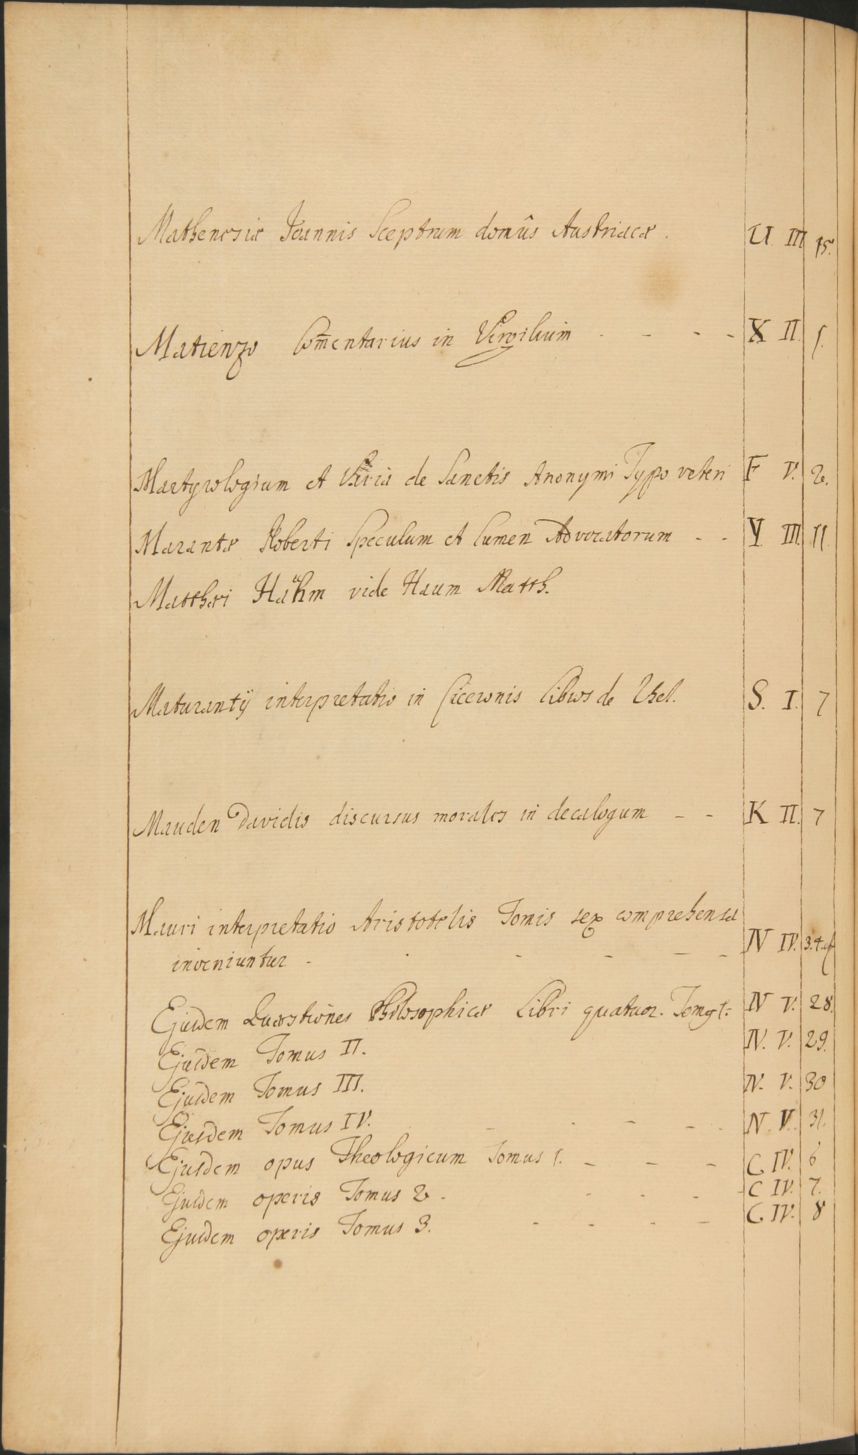 Mathenesiæ Joannis Sceptrum domûs Austriacæ. U III 15.
Matienzo Com̄entarius in Virgilium - - - - X II. 1.
Martyrologium et de Sanctis Anonymi Typo veteri F V. 2.
Marantæ Roberti Speculum et Lumen Advocatorum - - Y III 11
Matthæi vide Haum Matth.
Maturantij interpretatio in Ciceronis libros de S. I. 7
Mauden Davidis discursus morales in decalogum - - K II. 7
Mauri interpretatio Aristotelis Tomis sex comprehensa
inveniuntur - - - - - N IV. 3.4.
Ejusdem Quæstiones Philosophicæ Libri quatuor. N V. 28.
Ejusdem Tomus II. N. V. 29.
Ejusdem Tomus III. N. V. 30
Ejusdem Tomus IV. - - - - N. V. 31.
Ejusdem opus Theologicum Tomus 1. - - - C IV. 6
Ejusdem operis Tomus 2. - - - C IV. 7.
Ejusdem operis Tomus 3. - - - - C. IV. 8